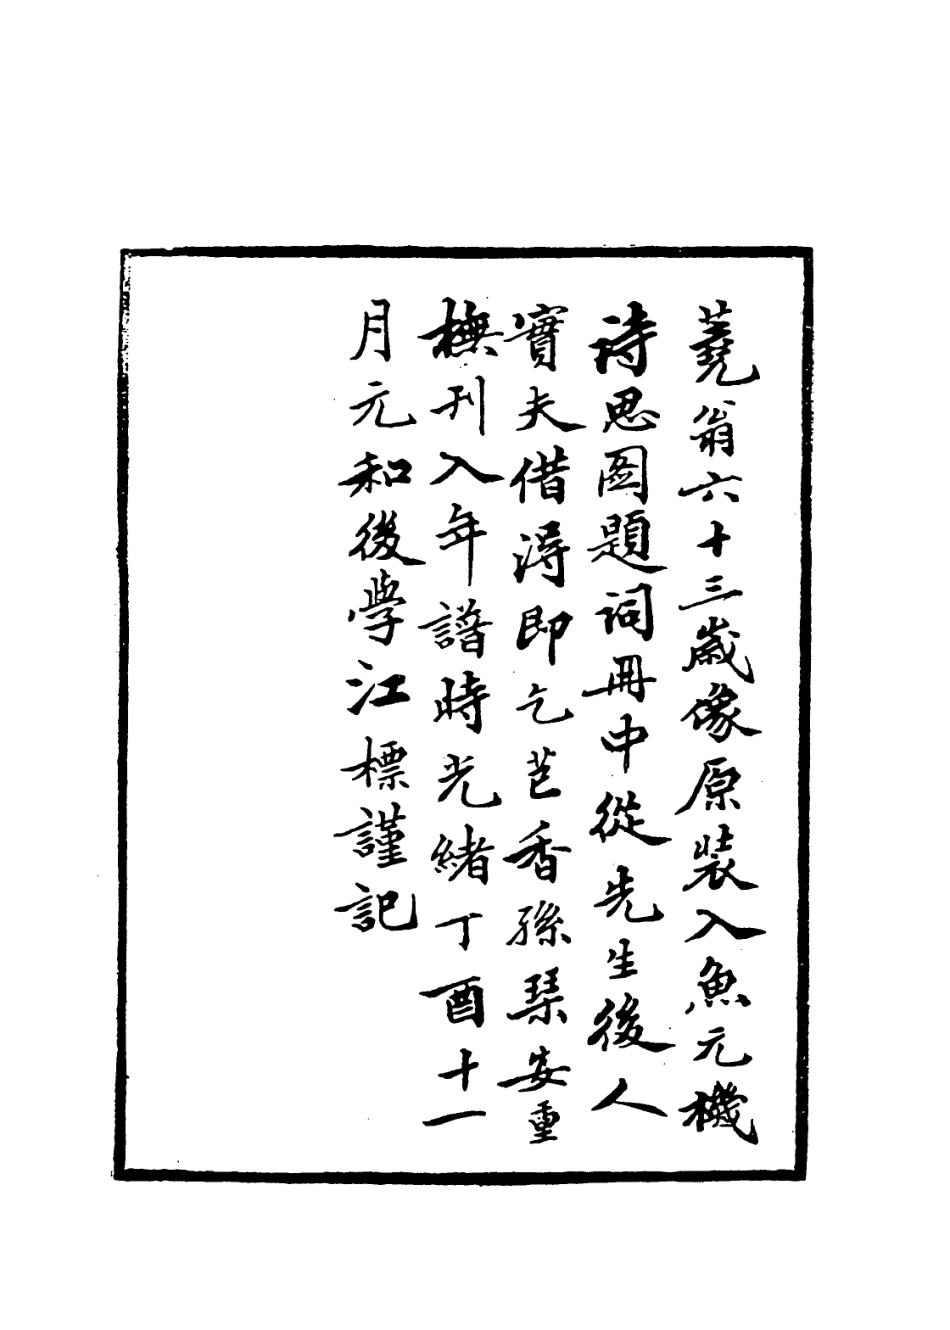 蕘翁六十三歲像原裝入魚元機
詩思圖題詞冊中從先生後人
實夫借得即乞芑香孫琹安重
橅刊入年譜時光緒丁酉十一
月元和後學江標謹記